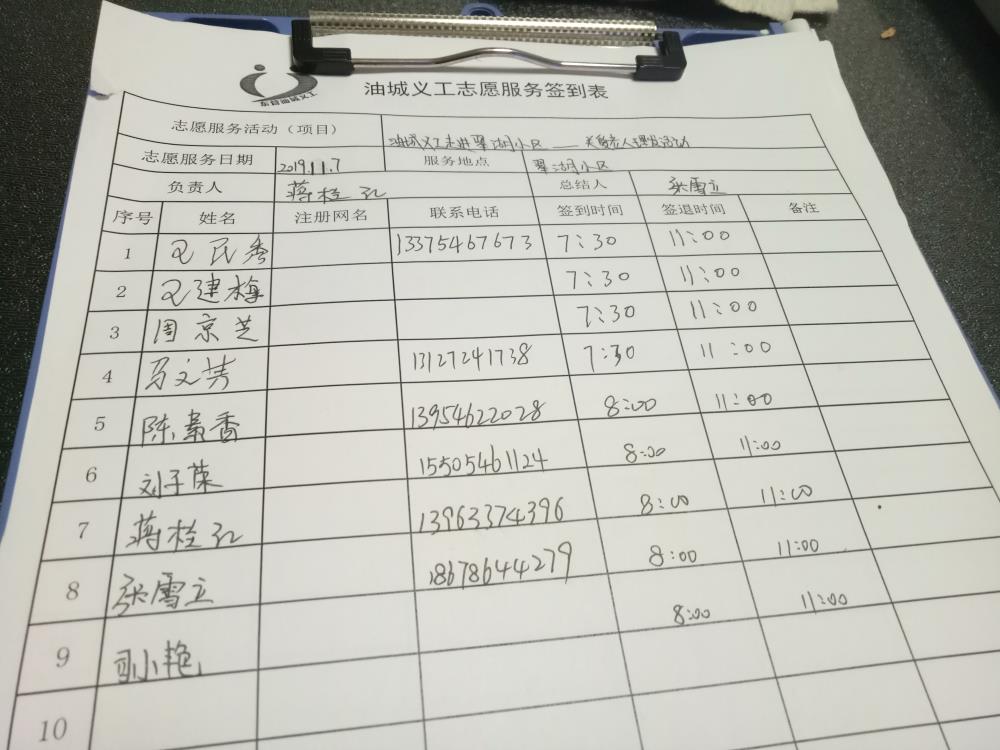 东营油城义工
油城义工志愿服务签到表
志愿服务活动（项目） 油城义工走进翠湖小区——关爱老人理发活动
志愿服务日期 2019.11.7 服务地点 翠湖小区
负责人 蒋栓红 总结人 张雪立
序号 姓名 注册网名 联系电话 签到时间 签退时间 备注
1 民秀 13375467673 7:30 11:00
2 建梅 7:30 11:00
3 周京芝 7:30 11:00
4 马文芳 13127241738 7:30 11:00
5 陈香 13954622028 8:00 11:00
6 刘子葉 15505461124 8:00 11:00
7 蒋栓红 13963374396 8:00 11:00
8 张雪立 18678644279 8:00 11:00
9 司小艳 8:00 11:00
10